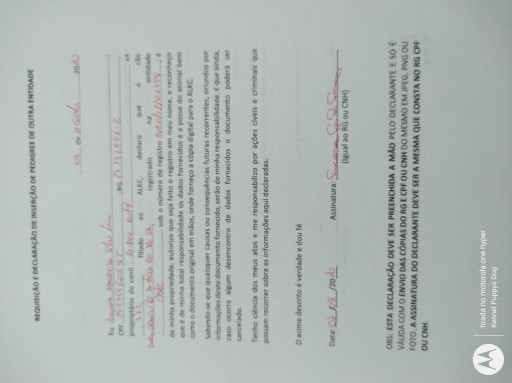 REQUISIÇÃO E DECLARAÇÃO DE INSERÇÃO DE PEDIGREE DE OUTRA ENTIDADE
de 2020
Eu
CPF RG
proprietário do canil nº
filiado ao ALKC, declaro que o cão
registrado na entidade
sob o número de registro e
de minha propriedade, autorizo que seja feito o registro em meu nome, e reconheço
que é de minha total responsabilidade os dados fornecidos e a posse do animal bem
como o documento original em mãos, onde forneço a cópia digital para o ALKC.
Sabendo-se que quaisquer causas ou consequências futuras recorrentes, oriundos por
informações deste documento fornecido, serão de minha responsabilidade. E que ainda,
caso ocorra algum desencontro de dados fornecidos o documento poderá ser
cancelado.
Tenho ciência dos meus atos e me responsabilizo por ações cíveis e criminais que
possam recorrer sobre as informações aqui declaradas.
O acima descrito é verdade e dou fé
Data: /2020 Assinatura:
(Igual ao RG ou CNH)
OBS: ESTA DECLARAÇÃO DEVE SER PREENCHIDA A MÃO PELO DECLARANTE E SÓ É
VÁLIDA COM O ENVIO DAS CÓPIAS DO RG E CPF OU CNH DO MESMO EM JPEG, PNG OU
FOTO. A ASSINATURA DO DECLARANTE DEVE SER A MESMA QUE CONSTA NO RG CPF
OU CNH.
tirada no motorola one hyper
Kennel Puppys Dog